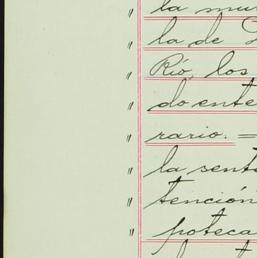 " la mu
" la de
" Río, los
" do ente
" rario. =
" la sent
" tención
" poteca